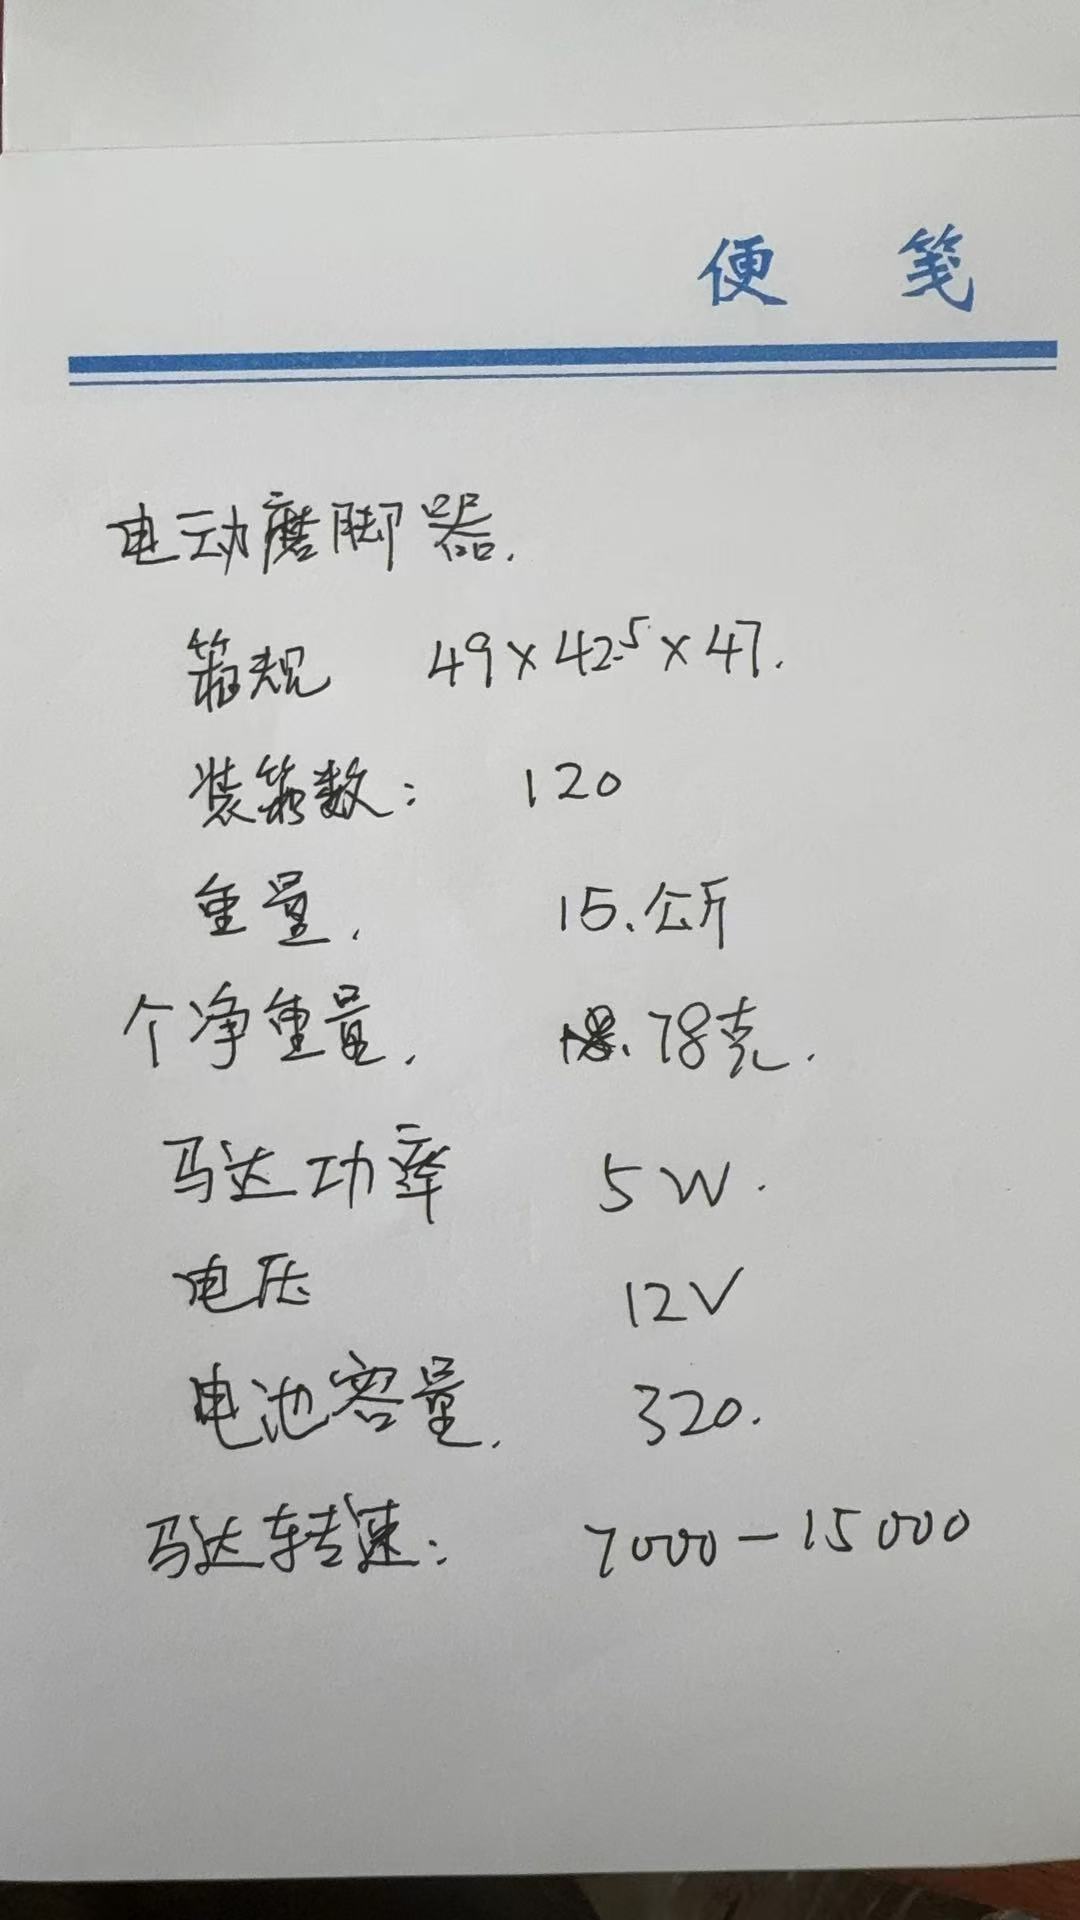 便 笺
电动磨脚器.
箱规 49×42.5×47.
装箱数: 120
重量. 15.公斤
个净重量. 78克.
马达功率 5W.
电压 12V
电池容量. 320.
马达转速: 7000-15000